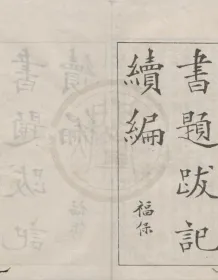 書題跋記
續編
福保